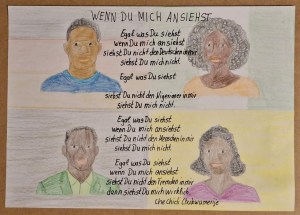 WENN DU MICH ANSIEHST
Egal was Du siehst
wenn Du mich ansiehst
siehst Du nicht den Deutschen in mir
siehst Du mich nicht.
Egal was Du siehst
siehst Du nicht den Nigerianer in mir
siehst Du mich nicht.
Egal was Du siehst
wenn Du mich ansiehst
siehst Du nicht den Menschen in mir
siehst Du mich nicht.
Egal was Du siehst
wenn Du mich ansiehst
siehst Du nicht den Fremden in mir
dann siehst Du mich wirklich.
Che Chidi Chukwumerije